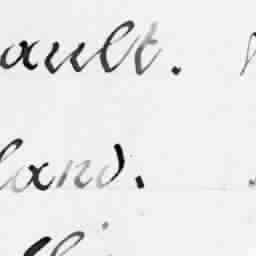 ault.
land.